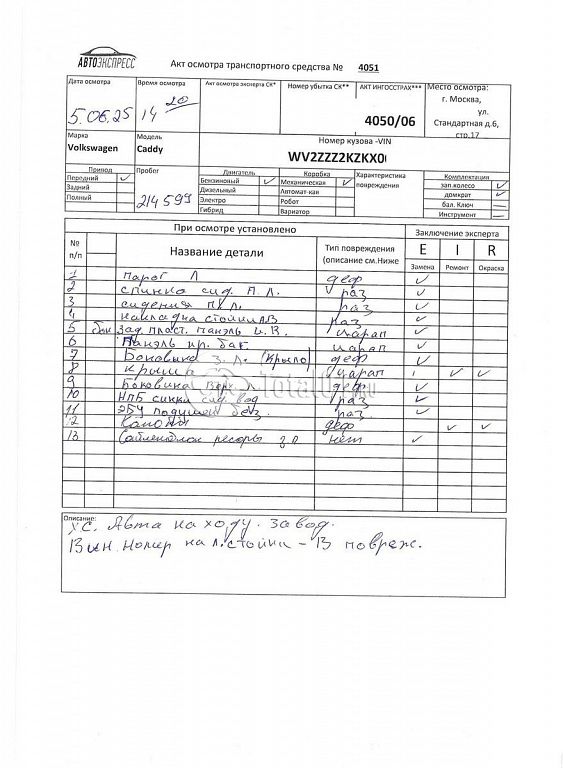 АВТОЭКСПРЕСС
Акт осмотра транспортного средства № 4051
Дата осмотра
Время осмотра
Акт осмотра эксперта СК*
Номер убытка СК**
АКТ ИНГОССТРАХ***
Место осмотра:
г. Москва,
ул.
Стандартная д.6,
стр.17
5.06.25
14 20
4050/06
Марка
Модель
Номер кузова -VIN
Volkswagen
Caddy
WV2ZZZ2KZKX0
Привод
Пробег
Двигатель
Коробка
Характеристика
повреждения
Комплектация
Передний
Бензиновый
Механическая
зап.колесо
Задний
Дизельный
Автомат-кая
домкрат
Полный
214599
Электро
Робот
бал. Ключ
Гибрид
Вариатор
Инструмент
При осмотре установлено
Заключение эксперта
№ п/п
Название детали
Тип повреждения
(описание см.Ниже
E I R
Замена Ремонт Окраска
1 порог Л деф
2 спинка сид. П.Л. раз
3 сидения П.Л. раз
4 накладка стойки раз
5 бок Зад. пласт. панэль царап
6 Панэль пр. баг. царап
7 Боковина З.Л. (Крыло) деф
8 крыша царап
9 Боковина деф
10 раз
11 ЭБУ подушек без. раз.
12 Капот деф
13 Сайленблок ресоры з.л нет
Описание:
УС. Авта на ходу. Завод.
Вин. Номер на л.стойки - В повреж.